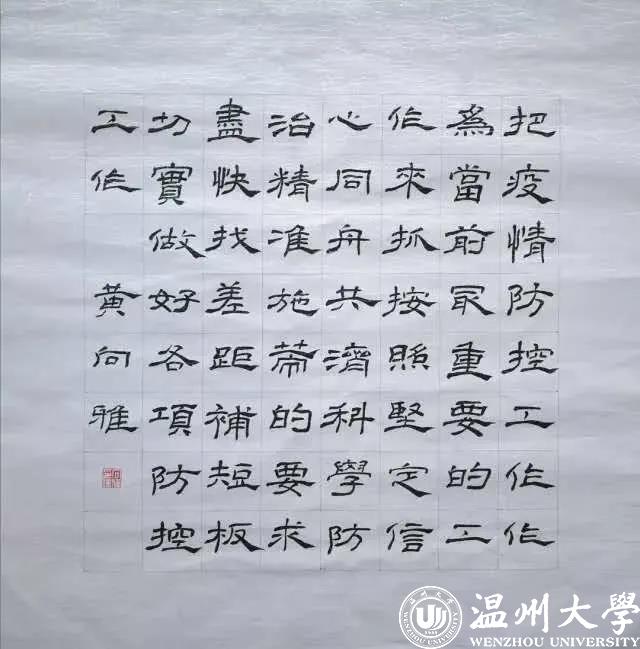 把疫情防控工作作
為當前最重要的工
作來抓按照堅定信
心同舟共濟科學防
治精准施策的要求
盡快找差距補短板
切實做好各項防控
工作 黃向雅
温州大學
WENZHOU UNIVERSITY